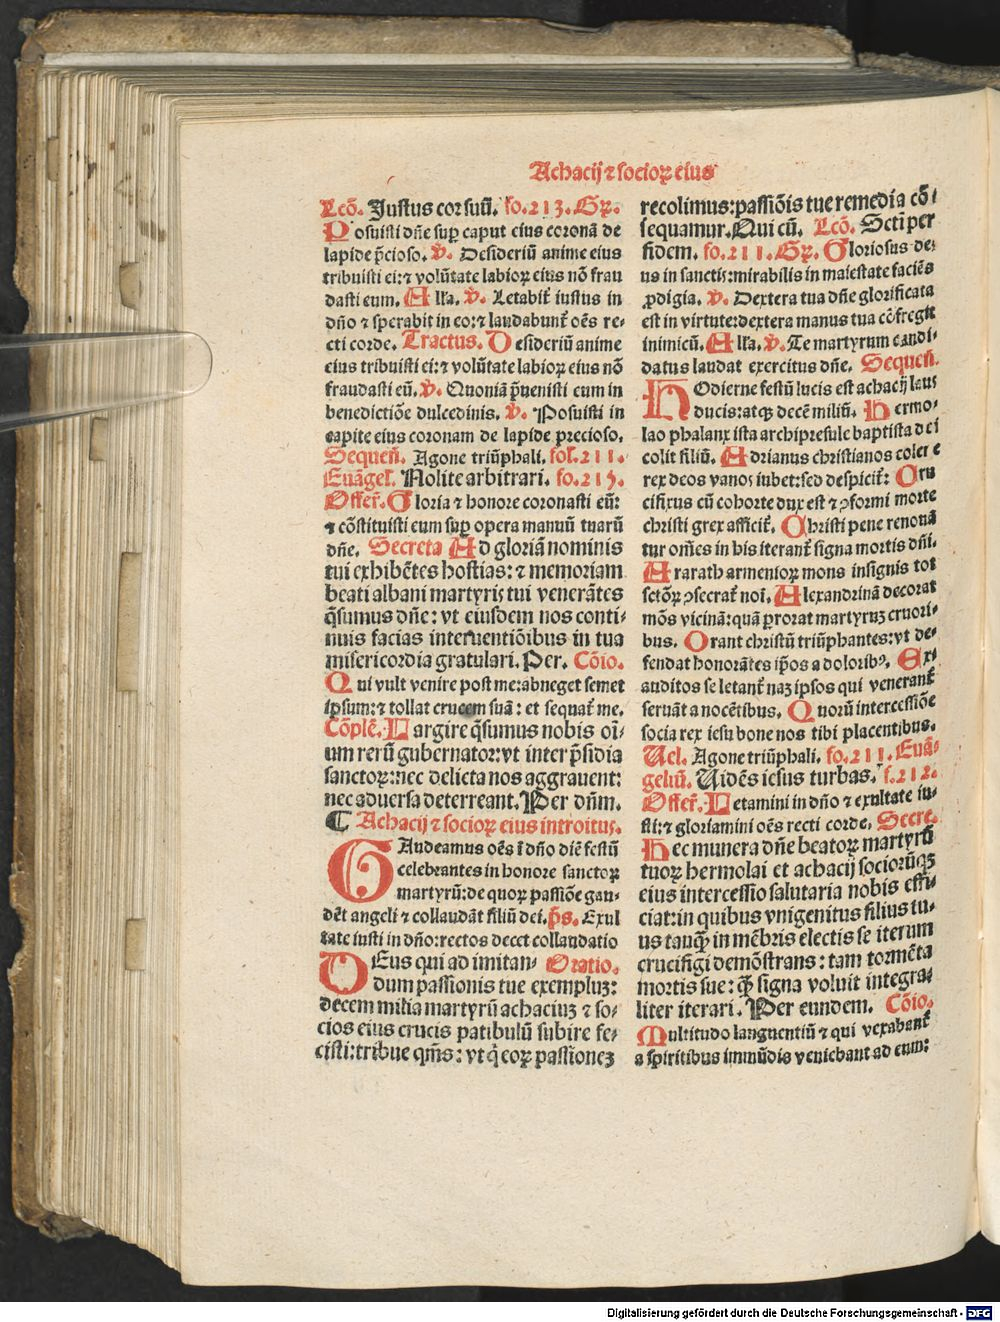 Achacij ⁊ socioꝝ eius
Lcō. Justus cor suū. fo.213. Gꝝ.
Posuisti dn̄e suꝑ caput eius coronā de
lapide p̄cioso. v̄. Desideriū anime eius
tribuisti ei:⁊ volūtate labioꝝ eius nō frau
dasti eum. Alľa. v̄. Letabit̄ iustus in
dn̄o ⁊ sperabit in eo:⁊ laudabunt̄ oēs re-
cti corde. Tractus. Desideriū anime
eius tribuisti ei:⁊ volūtate labioꝝ eius nō
fraudasti eū. v̄. Quoniā p̄uenisti eum in
benedictiōe dulcedinis. v̄. Posuisti in
capite eius coronam de lapide precioso.
Sequeň. Agone triūphali. fol.211.
Euāgeľ. Nolite arbitrari. fo.215.
Offeř. Gloria ⁊ honore coronasti eū:
⁊ cōstituisti eum suꝑ opera manuū tuarū
dn̄e. Secreta Ad gloriā nominis
tui exhibētes hostias:⁊ memoriam
beati albani martyris tui venerātes
q̄sumus dn̄e: vt eiusdem nos conti-
nuis facias interuentiōibus in tua
misericordia gratulari. Per. Cōio.
Qui vult venire post me:abneget semet
ipsum:⁊ tollat crucem suā: et sequat̄ me.
Cōplē. Largire q̄sumus nobis oī-
um rerū gubernator:vt inter p̄sidia
sanctoꝝ:nec delicta nos aggrauent:
nec aduersa deterreant. Per dn̄m.
¶ Achacij ⁊ socioꝝ eius introitus.
GAudeamus oēs ī dn̄o diē festū
celebrantes in honore sanctoꝝ
martyrū:de quoꝝ passiōe gau-
dēt angeli ⁊ collaudāt filiū dei. p̄s. Exul
tate iusti in dn̄o:rectos decet collaudatio
DEus qui ad imitan- Oratio.
dum passionis tue exempluꝫ:
decem milia martyrū achaciuꝫ ⁊ so-
cios eius crucis patibulū subire fe-
cisti:tribue qm̄s: vt q̄ eoꝝ passioneꝫ
recolimus:passiōis tue remedia cō-
sequamur. Qui cū. Lcō. Sctī per
fidem. fo.211. Gꝝ. Gloriosus de-
us in sanctis:mirabilis in maiestate faciēs
ꝓdigia. v̄. Dextera tua dn̄e glorificata
est in virtute:dextera manus tua cōfregit
inimicū. Alľa. v̄. Te martyrum candi-
datus laudat exercitus dn̄e. Sequeň.
HOdierne festū lucis est achacij laus
ducis:atqꝫ decē miliū. Hermo-
lao phalanx ista archipresule baptista dei
colit filiū. Adrianus christianos colere
rex deos vanos iubet:sed despicit̄: Cru
cifixus cū cohorte dux est ⁊ ꝯformi morte
christi grex afficit̄. Christi pene renouā
tur om̄es in his iterant̄ signa mortis dn̄i.
Ararath armenioꝝ mons insignis tot
sctōꝝ ꝯsecrat̄ noī. Alexandrinā decorat
mōs vicinā:quā prorat martyruꝫ cruori-
bus. Orant christū triūphantes:vt de-
fendat honorātes ip̄os a doloribꝰ. Ex-
auditos se letant̄ naꝫ ipsos qui venerant̄
seruāt a nocētibus. Quorū intercessiōe
socia rex iesu bone nos tibi placentibus.
Uel. Agone triūphali. fo.211. Euā-
geliū. Uidēs iesus turbas. f.212.
Offeř. Letamini in dn̄o ⁊ exultate iu-
sti:⁊ gloriamini oēs recti corde. Secre.
Hec munera dn̄e beatoꝝ martyrū
tuoꝝ hermolai et achacij sociorūqꝫ
eius intercessio salutaria nobis effi-
ciat:in quibus vnigenitus filius tu-
us tanꝗ̄ in mēbris electis se iterum
crucifigi demōstrans: tam tormēta
mortis sue: ꝗ̄ signa voluit integra-
liter iterari. Per eundem. Cōio.
Multitudo languentiū ⁊ qui vexabant̄
a spiritibus immūdis veniebant ad eum:
Digitalisierung gefördert durch die Deutsche Forschungsgemeinschaft - DFG